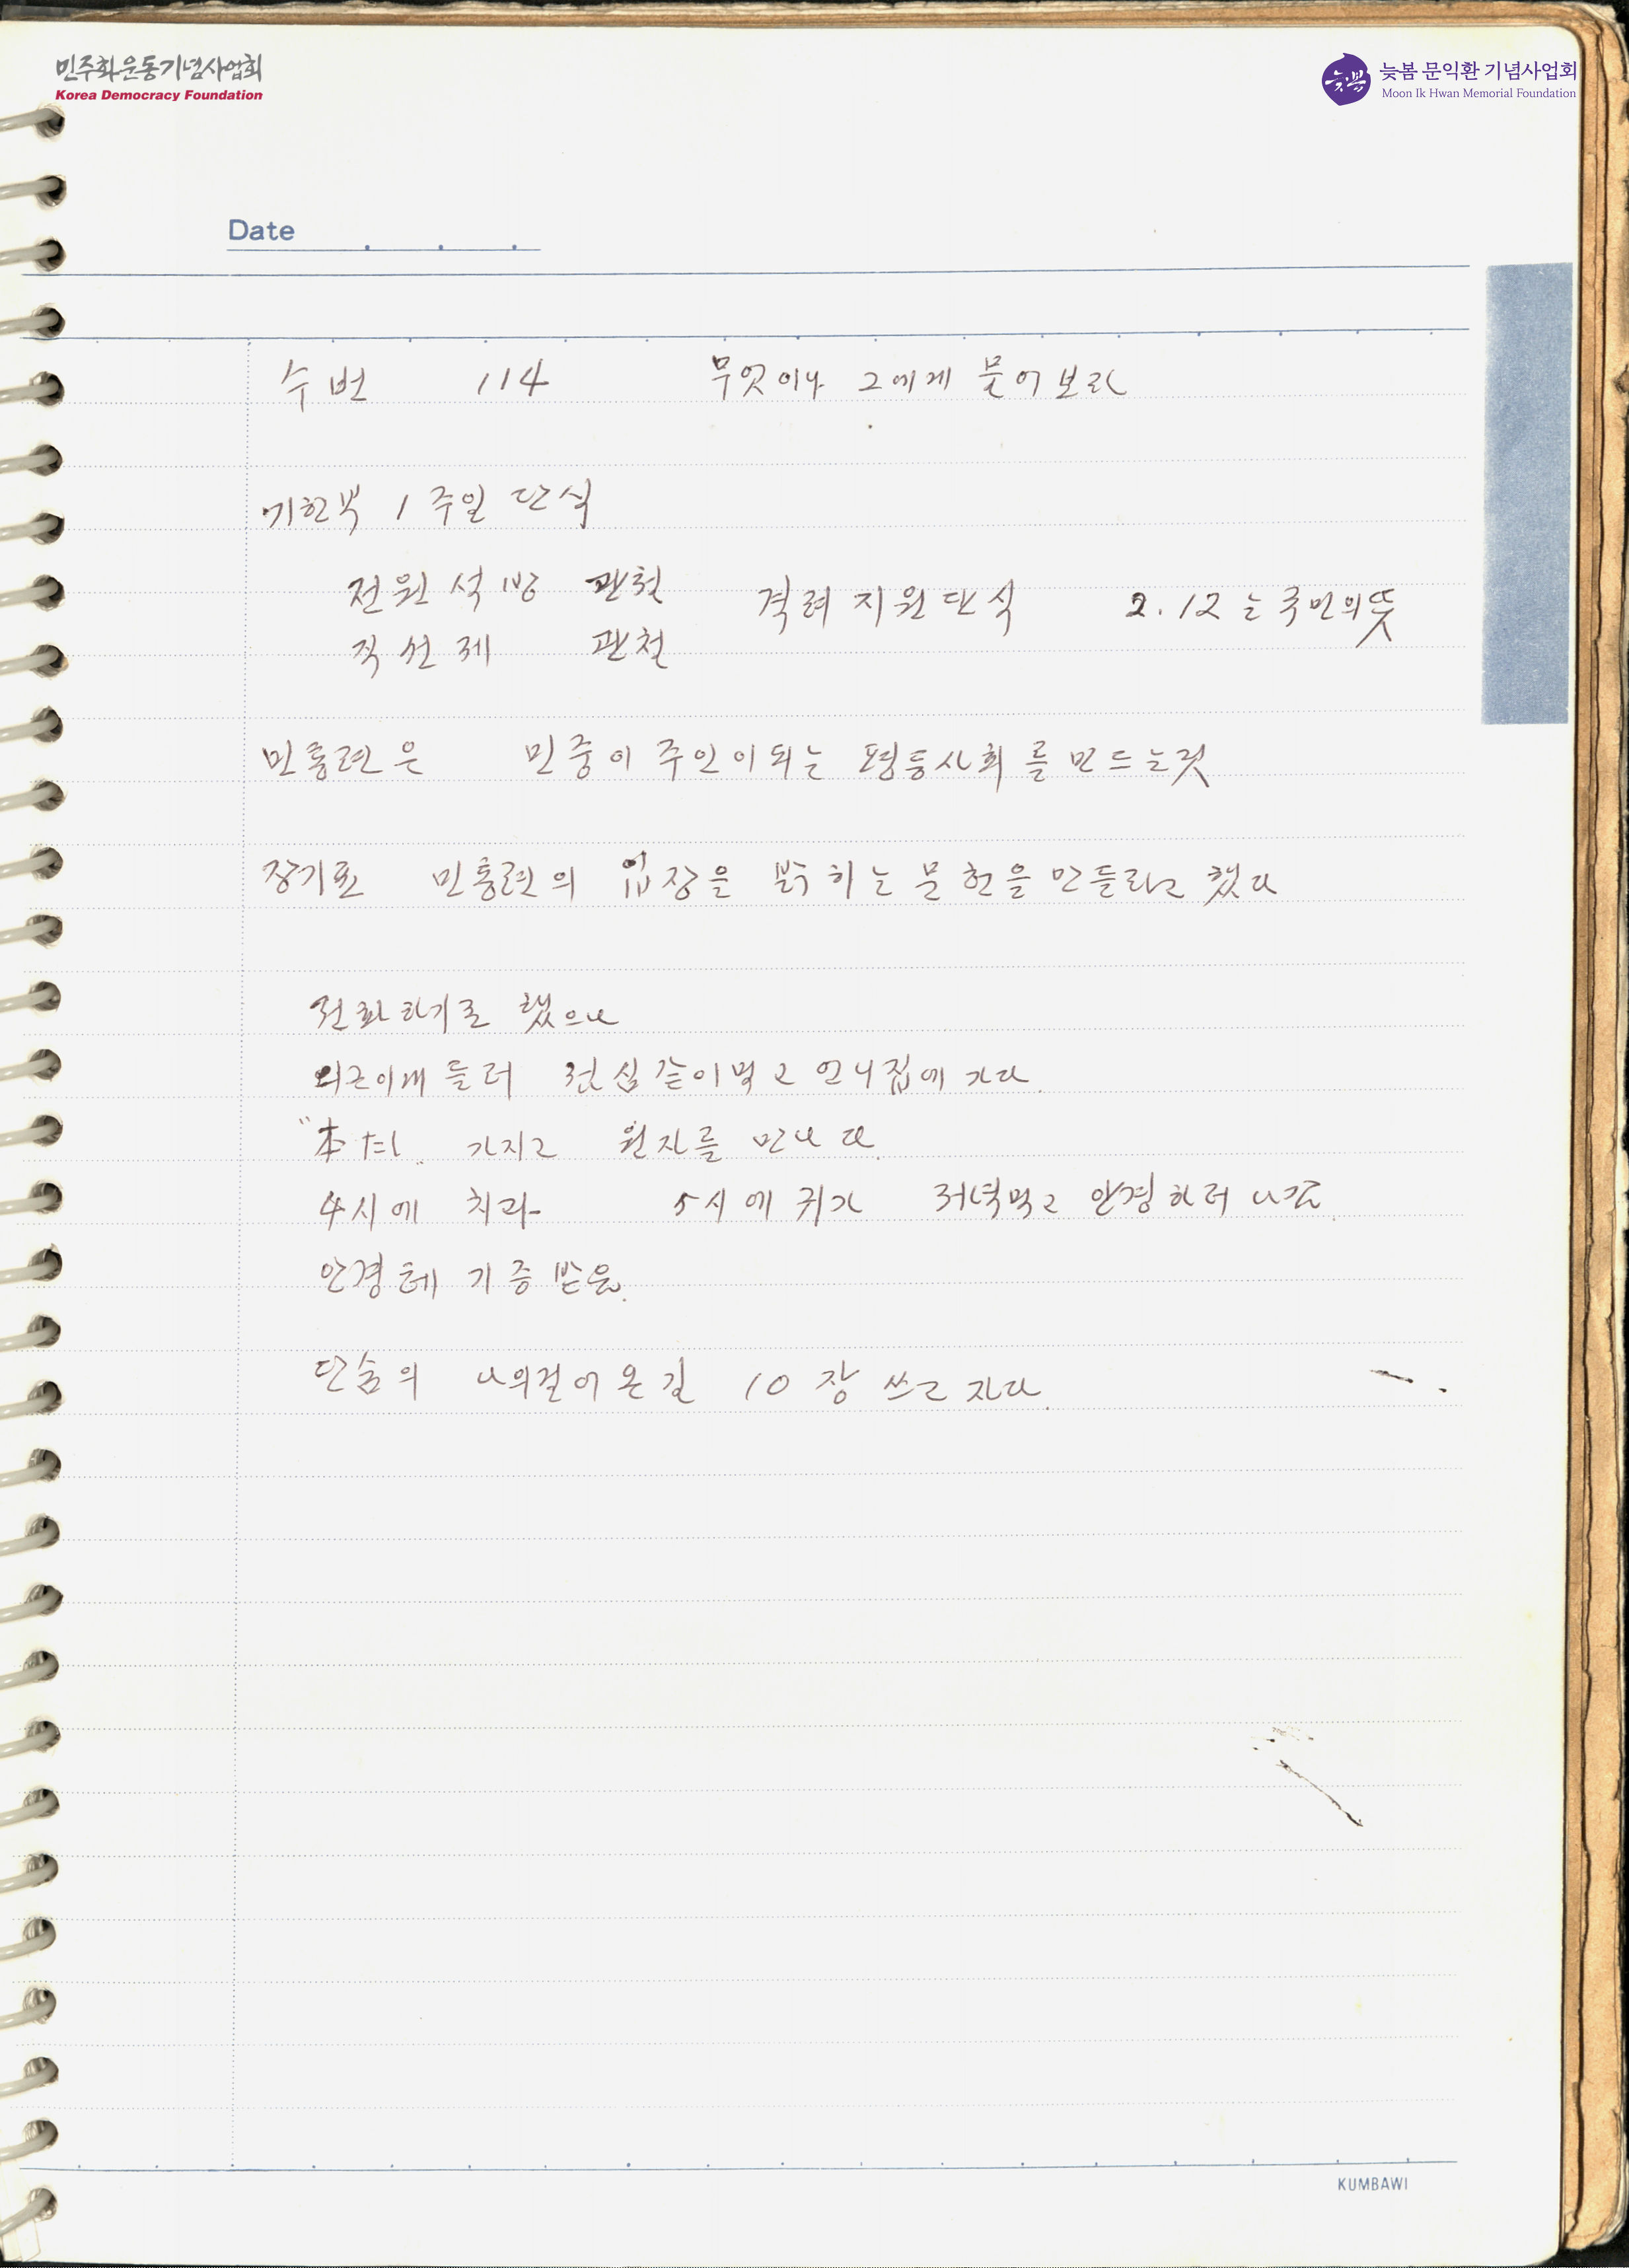 민주화운동기념사업회
Korea Democracy Foundation
늦봄 문익환 기념사업회
Moon Ik Hwan Memorial Foundation
Date
수번 114 무엇이나 그에게 물어보라
1주일 단식
전원석방 관철 격려 지원단식 2.12는 국민의 뜻
직선제 관철
민통련은 민중이 주인이되는 평등사회를 만드는것
장기표 민통련의 입장을 밝히는 문헌을 만들라고 했다
전화하기로 했으나
들러 점심같이먹고 언니집에 가다.
가지고 원자를 만나다.
4시에 치과 5시에 귀가 저녁먹고 안경하러 나감.
안경테 기증받음.
단숨의 나의걸어온길 10장 쓰고 자다.
KUMBAWI